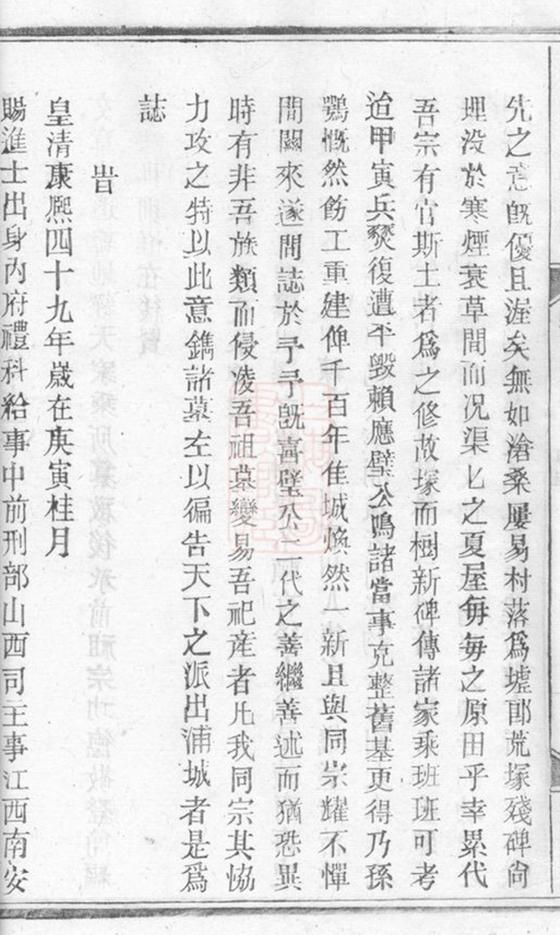 先之意旣優且渥矣無如滄桑屢易村落爲墟郎荒塚殘碑尙
埋没於寒煙衰草間而况渠匕之夏屋每每之原田乎幸累代
吾宗有官斯土者爲之修故塚而樹新碑傳諸家乘班班可考
迨甲寅兵燹復遭平毀賴應璧公鳴諸當事克整舊基更得乃孫
鶚慨然飭工重建俾千百年佳城煥然一新且與同宗耀不憚
間關來遂問誌於予予旣喜璧公二代之善繼善述而猶恐異
時有非吾族類而侵凌吾祖墓變易吾祀產者凡我同宗其恊
力攻之特以此意鐫諸墓左以徧告天下之派出浦城者是爲
誌
旹
皇清康熙四十九年歲在庚寅桂月
賜進士出身內府禮科給事中前刑部山西司主事江西南安